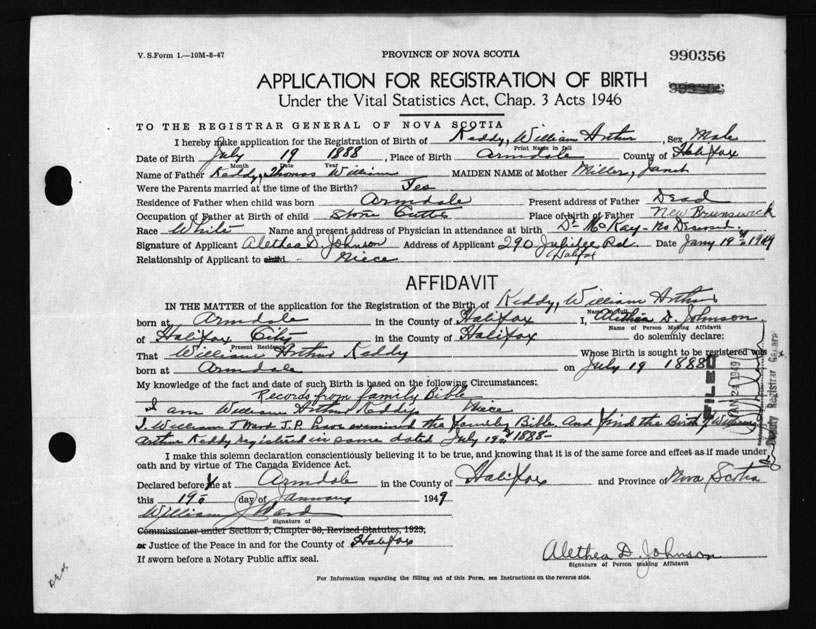 V. S. Form 1.—10M-8-47
PROVINCE OF NOVA SCOTIA
990356
APPLICATION FOR REGISTRATION OF BIRTH
Under the Vital Statistics Act, Chap. 3 Acts 1946
TO THE REGISTRAR GENERAL OF NOVA SCOTIA
I hereby make application for the Registration of Birth of Keddy, William Arthur, Sex Male
Print Name in full
Date of Birth July 19 1888, Place of Birth Armdale County of Halifax
Month Date Year
Name of Father Keddy, Thomas William MAIDEN NAME of Mother Miller, Janet
Were the Parents married at the time of the Birth? Yes
Residence of Father when child was born Armdale Present address of Father Dead
Occupation of Father at Birth of child Stone Cutter Place of birth of Father New Brunswick
Race White Name and present address of Physician in attendance at birth Dr McKay - Is Deceased.
Signature of Applicant Alethea D. Johnson Address of Applicant 290 Jubilee Rd. Date Jany 19th 1949
Halifax
Relationship of Applicant to child - Niece
AFFIDAVIT
IN THE MATTER of the application for the Registration of the Birth of Keddy, William Arthur
Name in full
born at Armdale in the County of Halifax I, Alethea D. Johnson
Name of Person Making Affidavit
of Halifax City in the County of Halifax do solemnly declare:
Present Residence
That William Arthur Keddy Whose Birth is sought to be registered was
born at Armdale on July 19 1888
My knowledge of the fact and date of such Birth is based on the following Circumstances:
Records from family Bible
I am William Arthur Keddy's Niece
I. William J Ward J.P. have examined the family Bible. And find the Birth of William
Arthur Keddy registered in same dated July 19th 1888-
I make this solemn declaration conscientiously believing it to be true, and knowing that it is of the same force and effect as if made under
oath and by virtue of The Canada Evidence Act.
Declared before at Armdale in the County of Halifax and Province of Nova Scotia
this 19th day of January 1949
William J Ward
Signature of
Commissioner under Section 5, Chapter 38, Revised Statutes, 1923,
or Justice of the Peace in and for the County of Halifax
If sworn before a Notary Public affix seal.
Alethea D. Johnson
Signature of Person making Affidavit
For Information regarding the filling out of this Form, see Instructions on the reverse side.
FILED
JAN 21 1949
Deputy Registrar General